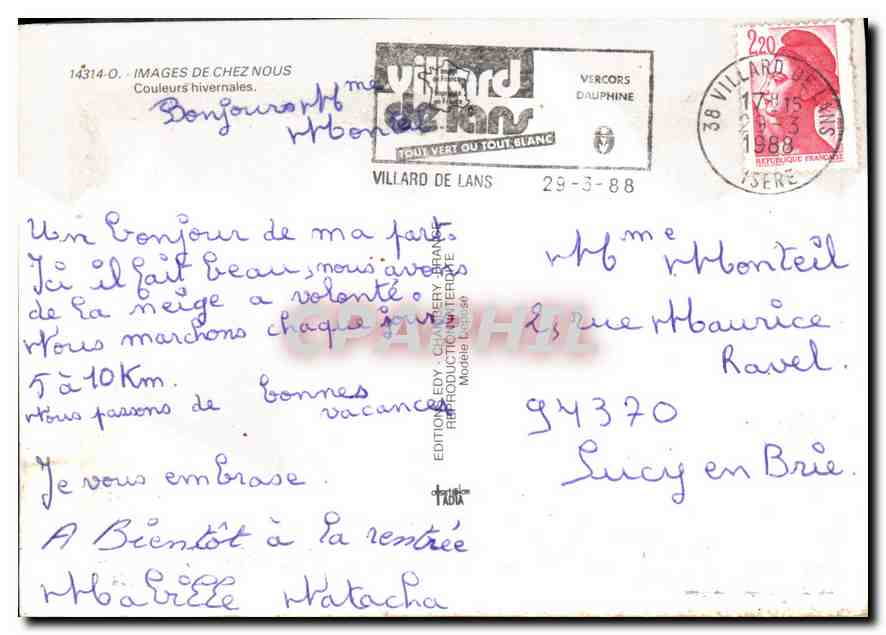 14314-O. - IMAGES DE CHEZ NOUS
Couleurs hivernales.
Bonjours Mme
Monteil
villard
de lans
TOUT VERT OU TOUT BLANC
VERCORS
DAUPHINE
VILLARD DE LANS 29-3-88
38 VILLARD DE LANS
17H15
29-3
1988
ISERE
2,20
REPUBLIQUE FRANÇAISE
Un bonjour de ma part.
Ici il fait beau, nous avons
de la neige a volonté.
Nous marchons chaque jour
5 à 10 Km.
Nous passons de bonnes
vacances
Je vous embrase.
A Bientôt à la rentrée
Mabille Natacha
EDITIONS EDY - CHAMBERY - FRANCE
REPRODUCTION INTERDITE
Modèle Déposé
ADIA
Mme Monteil
2, rue Maurice
Ravel.
94370
Sucy en Brie.
CPAPHIL